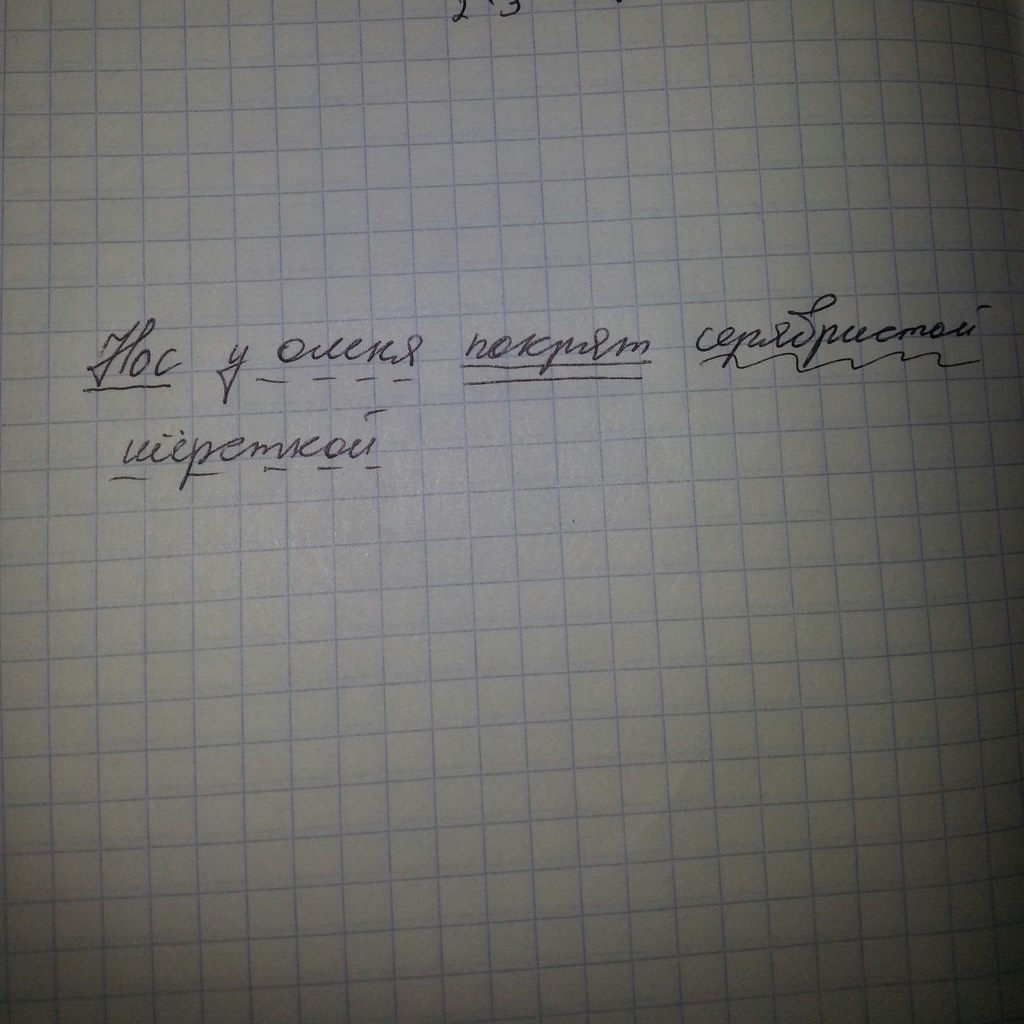 2 3
Нос у оленя покрят серябристой
шёрсткой